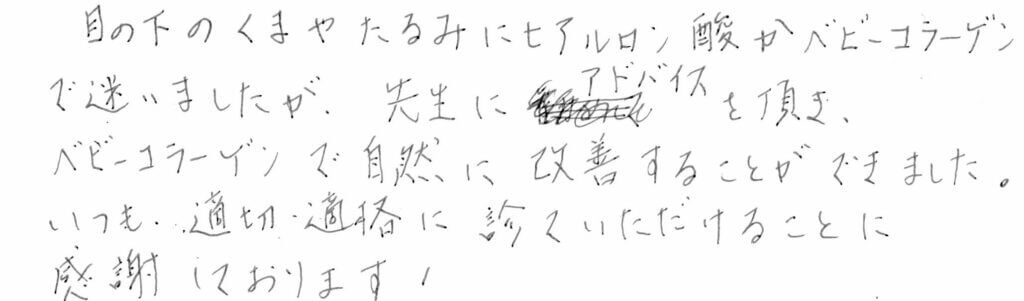 目の下のくまやたるみにヒアルロン酸かベビーコラーゲン
で迷いましたが、先生にアドバイスを頂き、
ベビーコラーゲンで自然に改善することができました。
いつも、適切・適格に診ていただけることに
感謝しております!